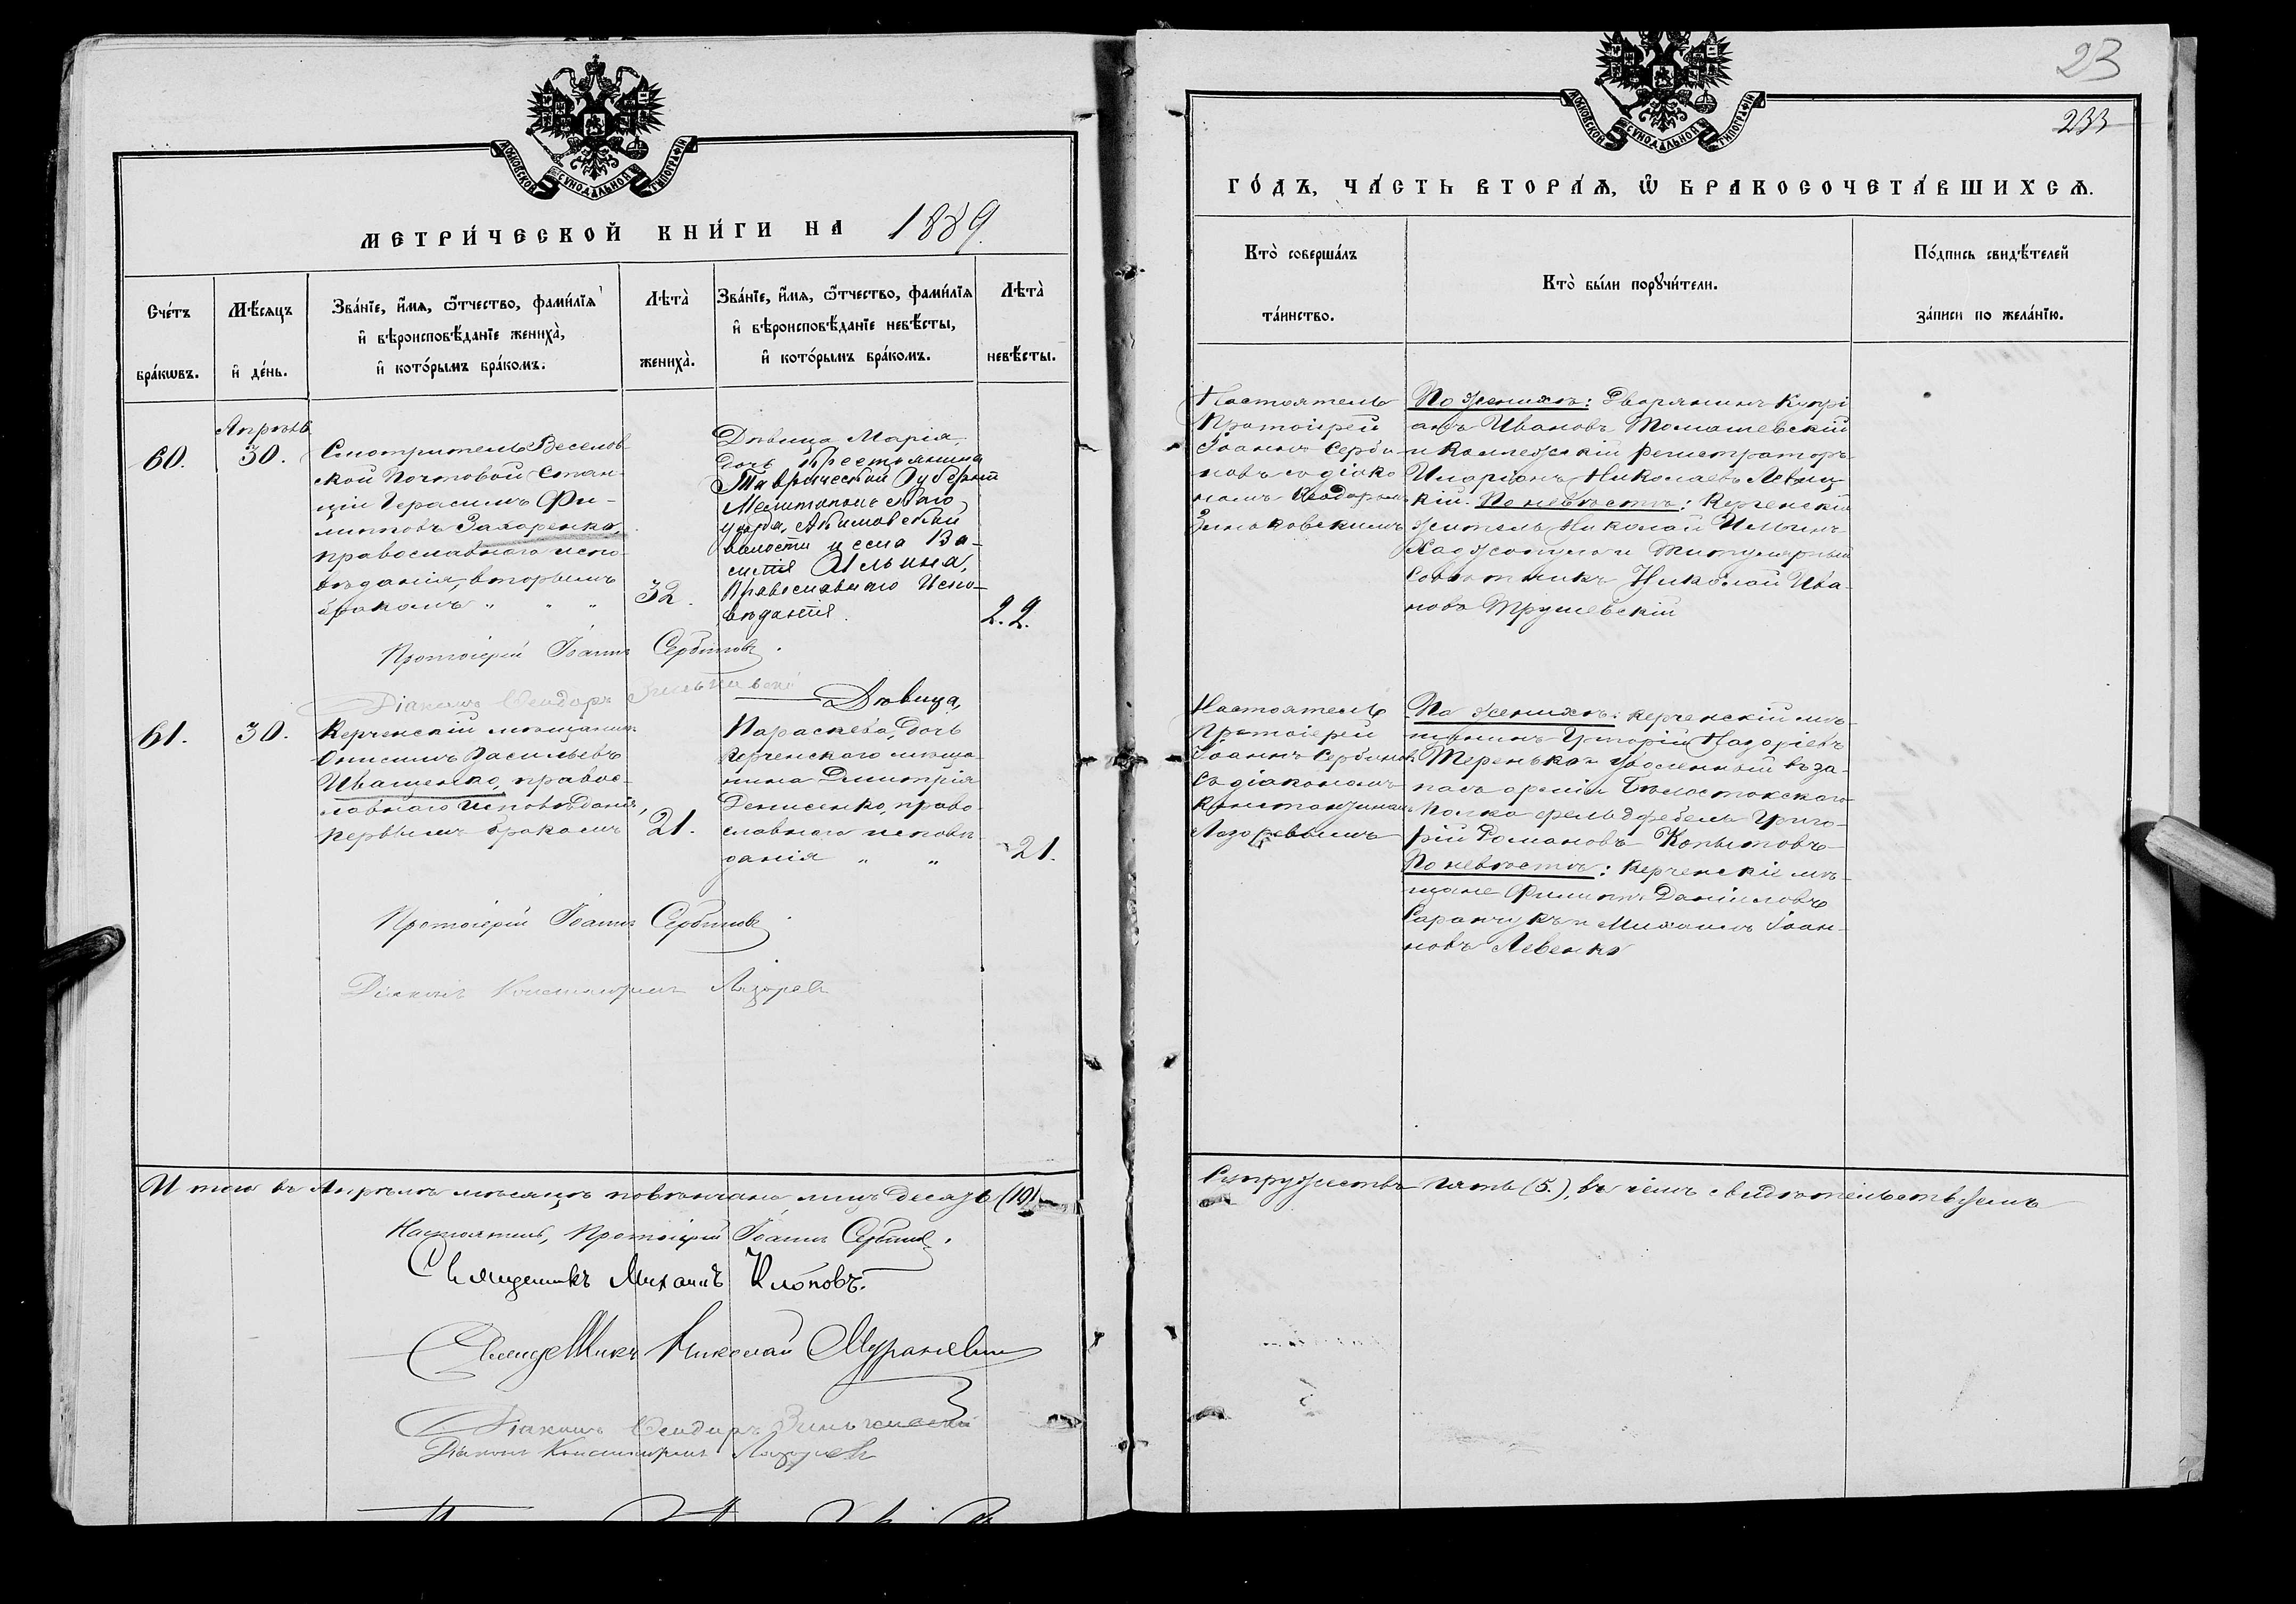 МОСКОВСКОЙ СѴНОДАЛЬНОЙ ТИПОГРАФІИ
МЕТРИ́ЧЕСКОЙ КНИ́ГИ НА 1889.
Сче́тъ бра́кѡвъ.
Мѣ́сяцъ и҆ де́нь.
Зва́нїе, и҆́мѧ, ѻ҆́тчество, фами́лїѧ
и҆ вѣроисповѣ́данїе жениха̀,
и҆ кото́рымъ бра́комъ.
Лѣта̀ жениха̀.
Зва́нїе, и҆́мѧ, ѻ҆́тчество, фами́лїѧ
и҆ вѣроисповѣ́данїе невѣ́сты,
и҆ кото́рымъ бра́комъ.
Лѣта̀ невѣ́сты.
60.
Апрѣль
30.
Смотритель Веселов-
ской Почтовой Стан-
ціи Герасимъ Фи-
липповъ Захаренко,
православнаго испо-
вѣданія, вторымъ
бракомъ " " "
32.
Дѣвица Марія,
дочь Крестьянина
Таврической Губерніи
Мелитопольскаго
уѣзда, Акимовской
волости и села Ва-
силія Ильина,
Православнаго Испо-
вѣданія.
22.
Протоіерей Іоаннъ Сербиновъ.
Діаконъ Ѳеодоръ Зиньковскій
61.
30.
Керченскій мѣщанинъ
Онисимъ Васильевъ
Иващенко, правос-
лавнаго Исповѣданія,
первымъ бракомъ
21.
Дѣвица,
Параскева, дочь
керченскаго мѣща-
нина Димитрія
Денисенко, право-
славнаго исповѣ-
данія " "
21.
Протоіерей Іоаннъ Сербиновъ.
Діаконъ Константинъ Лазаревъ
Итого въ Апрѣлѣ мѣсяцѣ повѣнчано лицъ десять (10)
Настоятель, Протоіерей Іоаннъ Сербиновъ.
Священникъ Михаилъ Клоповъ.
Священникъ Николай
Діаконъ Ѳеодоръ Зиньковскій
Діаконъ Константинъ Лазаревъ
23
233
МОСКОВСКОЙ СѴНОДАЛЬНОЙ ТИПОГРАФІИ
ГО́ДЪ, ЧА́СТЬ ВТОРА́Ѧ, Ѽ БРАКОСОЧЕТА́ВШИХСѦ.
Кто̀ соверша́лъ
та́инство.
Кто̀ бы́ли порꙋчи́тели.
По́дпись свидѣ́телей
за́писи по жела́нїю.
Настоятель
Протоіерей
Іоаннъ Серби-
новъ съ діако-
номъ Ѳеодоромъ
Зиньковскимъ
По женихѣ: Дворянинъ Купрі-
анъ Ивановъ Томашевскій
и Коллежскій регистраторъ
Иларіонъ Николаевъ Левиц-
кій. По невѣстѣ: Керченскій
житель Николай Ильинъ
и Титулярный
Совѣтникъ Николай Ива-
новъ Трушевскій
Настоятель
Протоіерей
Іоаннъ Сербиновъ
съ діакономъ
Константиномъ
Лазаревымъ
По женихѣ: керченскій мѣ-
щанинъ Григорій Назаріевъ
Теренько и уволенный въ за-
пасъ арміи Бѣлостокскаго
полка фельдфебель Григо-
рій Романовъ Копытовъ
По невѣстѣ: Керченскіе мѣ-
щане Филиппъ Даніиловъ
Саранчукъ и Михаилъ Іоан-
новъ Левенко
Супружествъ пять (5.), въ чемъ свидѣтельствуемъ